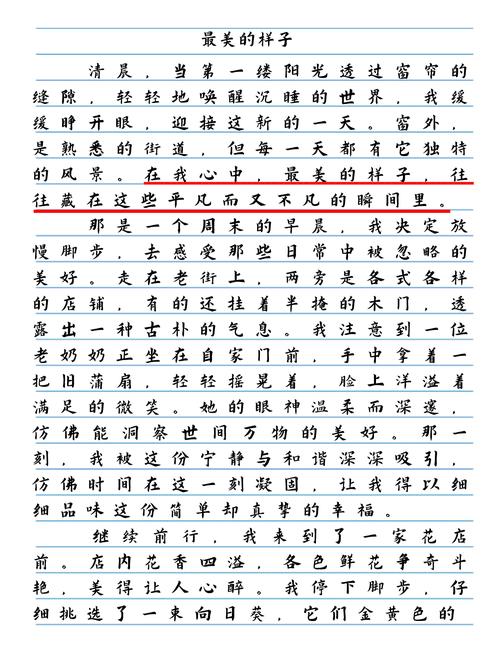 最美的样子
清晨，当第一缕阳光透过窗帘的
缝隙，轻轻地唤醒沉睡的世界，我缓
缓睁开眼，迎接这新的一天。窗外，
是熟悉的街道，但每一天都有它独特
的风景。在我心中，最美的样子，往
往藏在这些平凡而又不凡的瞬间里。
那是一个周末的早晨，我决定放
慢脚步，去感受那些日常中被忽略的
美好。走在老街上，两旁是各式各样
的店铺，有的还挂着半掩的木门，透
露出一种古朴的气息。我注意到一位
老奶奶正坐在自家门前，手中拿着一
把旧蒲扇，轻轻摇晃着，脸上洋溢着
满足的微笑。她的眼神温柔而深邃，
仿佛能洞察世间万物的美好。那一
刻，我被这份宁静与和谐深深吸引，
仿佛时间在这一刻凝固，让我得以细
细品味这份简单却真挚的幸福。
继续前行，我来到了一家花店
前。店内花香四溢，各色鲜花争奇斗
艳，美得让人心醉。我停下脚步，仔
细挑选了一束向日葵，它们金黄色的